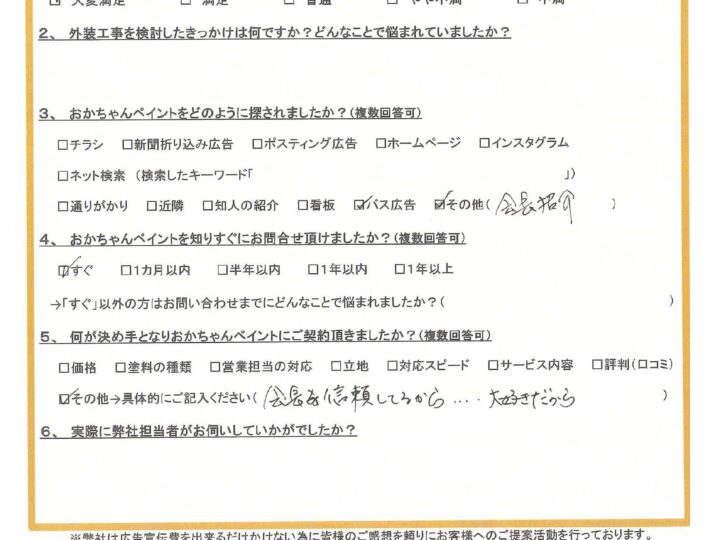 ☑ 大変満足　□ 満足　□ 普通　□ やや不満　□ 不満
2、 外装工事を検討したきっかけは何ですか？どんなことで悩まれていましたか？
3、 おかちゃんペイントをどのように探されましたか？（複数回答可）
□チラシ　□新聞折り込み広告　□ポスティング広告　□ホームページ　□インスタグラム
□ネット検索　（検索したキーワード「　　　」）
□通りがかり　□近隣　□知人の紹介　□看板　☑バス広告　☑その他（ 会長紹介　）
4、 おかちゃんペイントを知りすぐにお問合せ頂けましたか？（複数回答可）
☑すぐ　□1カ月以内　□半年以内　□1年以内　□1年以上
→「すぐ」以外の方はお問い合わせまでにどんなことで悩まれましたか？（　　　）
5、 何が決め手となりおかちゃんペイントにご契約頂きましたか？（複数回答可）
□価格　□塗料の種類　□営業担当の対応　□立地　□対応スピード　□サービス内容　□評判（口コミ）
☑その他→具体的にご記入ください（ 会長を信頼してるから….大好きだから　）
6、 実際に弊社担当者がお伺いしていかがでしたか？
※弊社は広告宣伝費を出来るだけかけない為に皆様のご感想を頼りにお客様へのご提案活動を行っております。